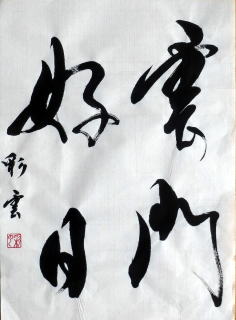 雲門
好日
彩雲